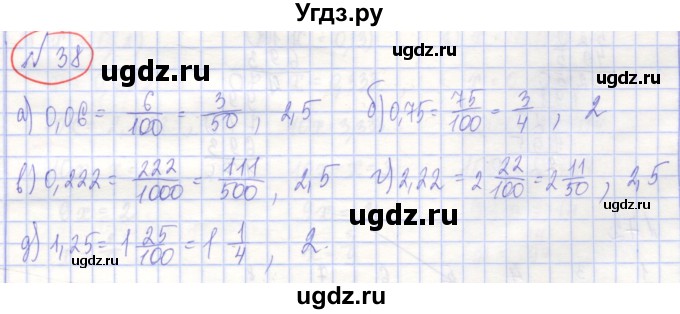 Угдз.ру
N 38
ugdz.ru ugdz.ru
а) 0,06 = 6/100 = 3/50, 2,5 б) 0,75 = 75/100 = 3/4, 2
ugdz.ru
в) 0,222 = 222/1000 = 111/500, 2,5 г) 2,22 = 2 22/100 = 2 11/50, 2,5
ugdz.ru
д) 1,25 = 1 25/100 = 1 1/4, 2.
ugdz.ru
ugdz.ru
ugdz.ru